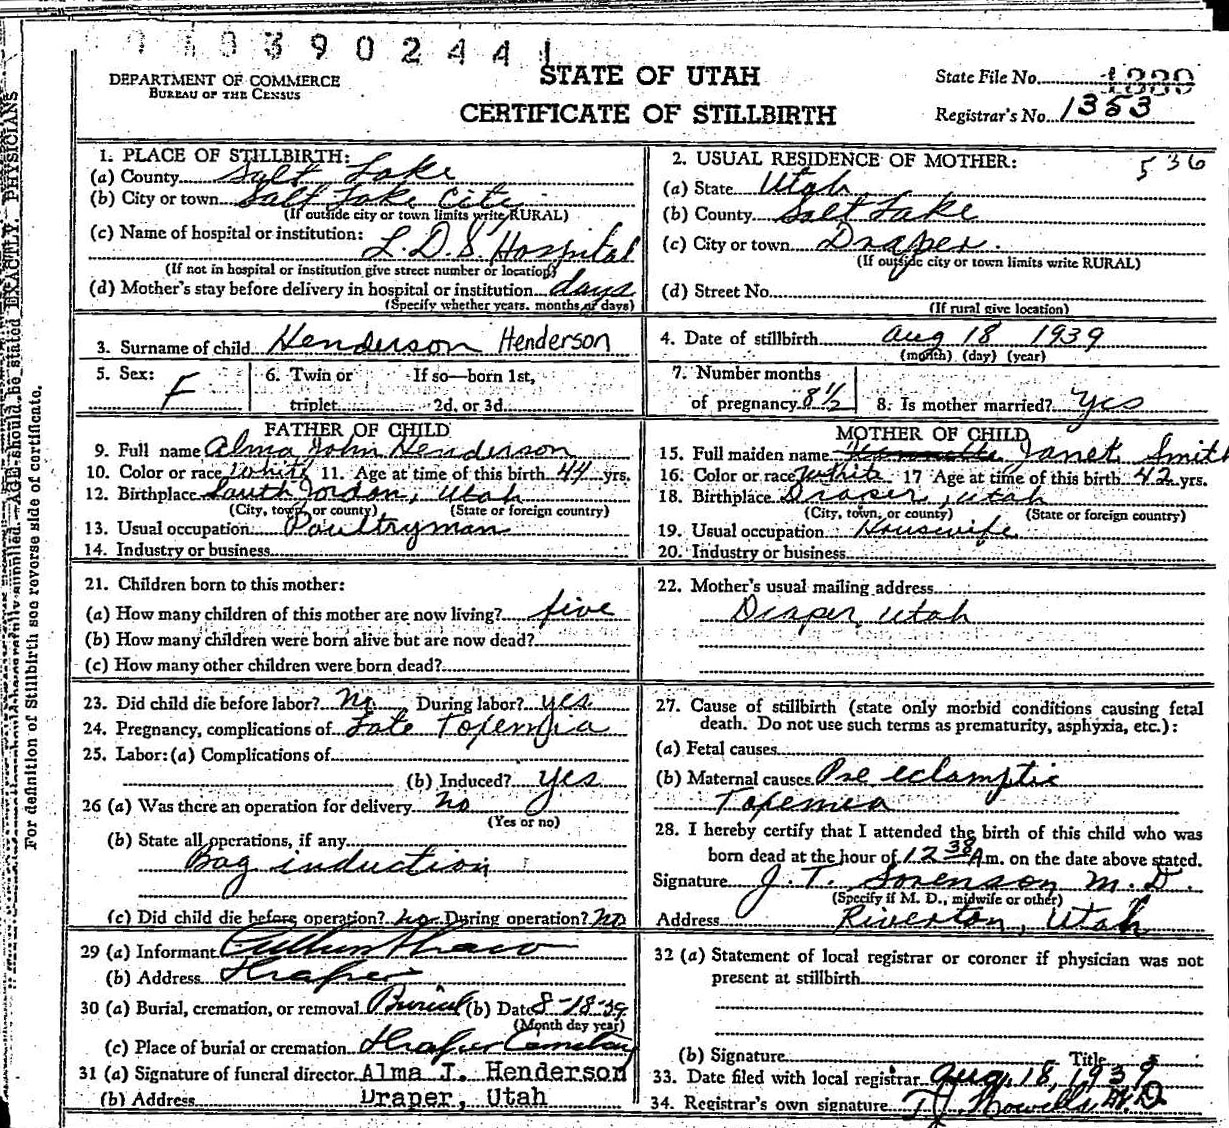 3902441
DEPARTMENT OF COMMERCE
BUREAU OF THE CENSUS
STATE OF UTAH
CERTIFICATE OF STILLBIRTH
State File No.
Registrar's No. 1353
536
1. PLACE OF STILLBIRTH:
(a) County Salt Lake
(b) City or town Salt Lake City
(If outside city or town limits write RURAL)
(c) Name of hospital or institution:
L.D.S. Hospital
(If not in hospital or institution give street number or location)
(d) Mother's stay before delivery in hospital or institution days
(Specify whether years. months or days)
2. USUAL RESIDENCE OF MOTHER:
(a) State Utah
(b) County Salt Lake
(c) City or town Draper.
(If outside city or town limits write RURAL)
(d) Street No.
(If rural give location)
3. Surname of child Henderson Henderson
4. Date of stillbirth Aug 18 1939
(month) (day) (year)
5. Sex: F
6. Twin or If so—born 1st,
triplet 2d. or 3d.
7. Number months
of pregnancy 8½
8. Is mother married? Yes
FATHER OF CHILD
9. Full name Alma John Henderson
10. Color or race White 11. Age at time of this birth 44 yrs.
12. Birthplace South Jordan, Utah
(City, town, or county) (State or foreign country)
13. Usual occupation Poultryman
14. Industry or business
MOTHER OF CHILD
15. Full maiden name Janet Smith
16. Color or race White 17 Age at time of this birth 42 yrs.
18. Birthplace Draper, Utah
(City, town, or county) (State or foreign country)
19. Usual occupation Housewife
20. Industry or business
21. Children born to this mother:
(a) How many children of this mother are now living? five
(b) How many children were born alive but are now dead?
(c) How many other children were born dead?
22. Mother's usual mailing address
Draper, Utah
23. Did child die before labor? No During labor? yes
24. Pregnancy, complications of Late Toxemia
25. Labor: (a) Complications of
(b) Induced? yes
26 (a) Was there an operation for delivery no
(Yes or no)
(b) State all operations, if any
Bag induction
(c) Did child die before operation? no During operation? no
27. Cause of stillbirth (state only morbid conditions causing fetal
death. Do not use such terms as prematurity, asphyxia, etc.):
(a) Fetal causes
(b) Maternal causes Pre eclamptic
Toxemia
28. I hereby certify that I attended the birth of this child who was
born dead at the hour of 12 38 Am. on the date above stated.
Signature J. T. Sorenson M.D.
(Specify if M. D., midwife or other)
Address Riverton, Utah
29 (a) Informant
(b) Address Draper
30 (a) Burial, cremation, or removal Burial (b) Date 8-18-39
(Month day year)
(c) Place of burial or cremation Draper Cemetary
31 (a) Signature of funeral director Alma J. Henderson
(b) Address Draper, Utah
32 (a) Statement of local registrar or coroner if physician was not
present at stillbirth
(b) Signature Title
33. Date filed with local registrar Aug. 18, 1939
34. Registrar's own signature T.J. Howells M.D.
For definition of Stillbirth see reverse side of certificate.
AGE should be stated EXACTLY. PHYSICIANS